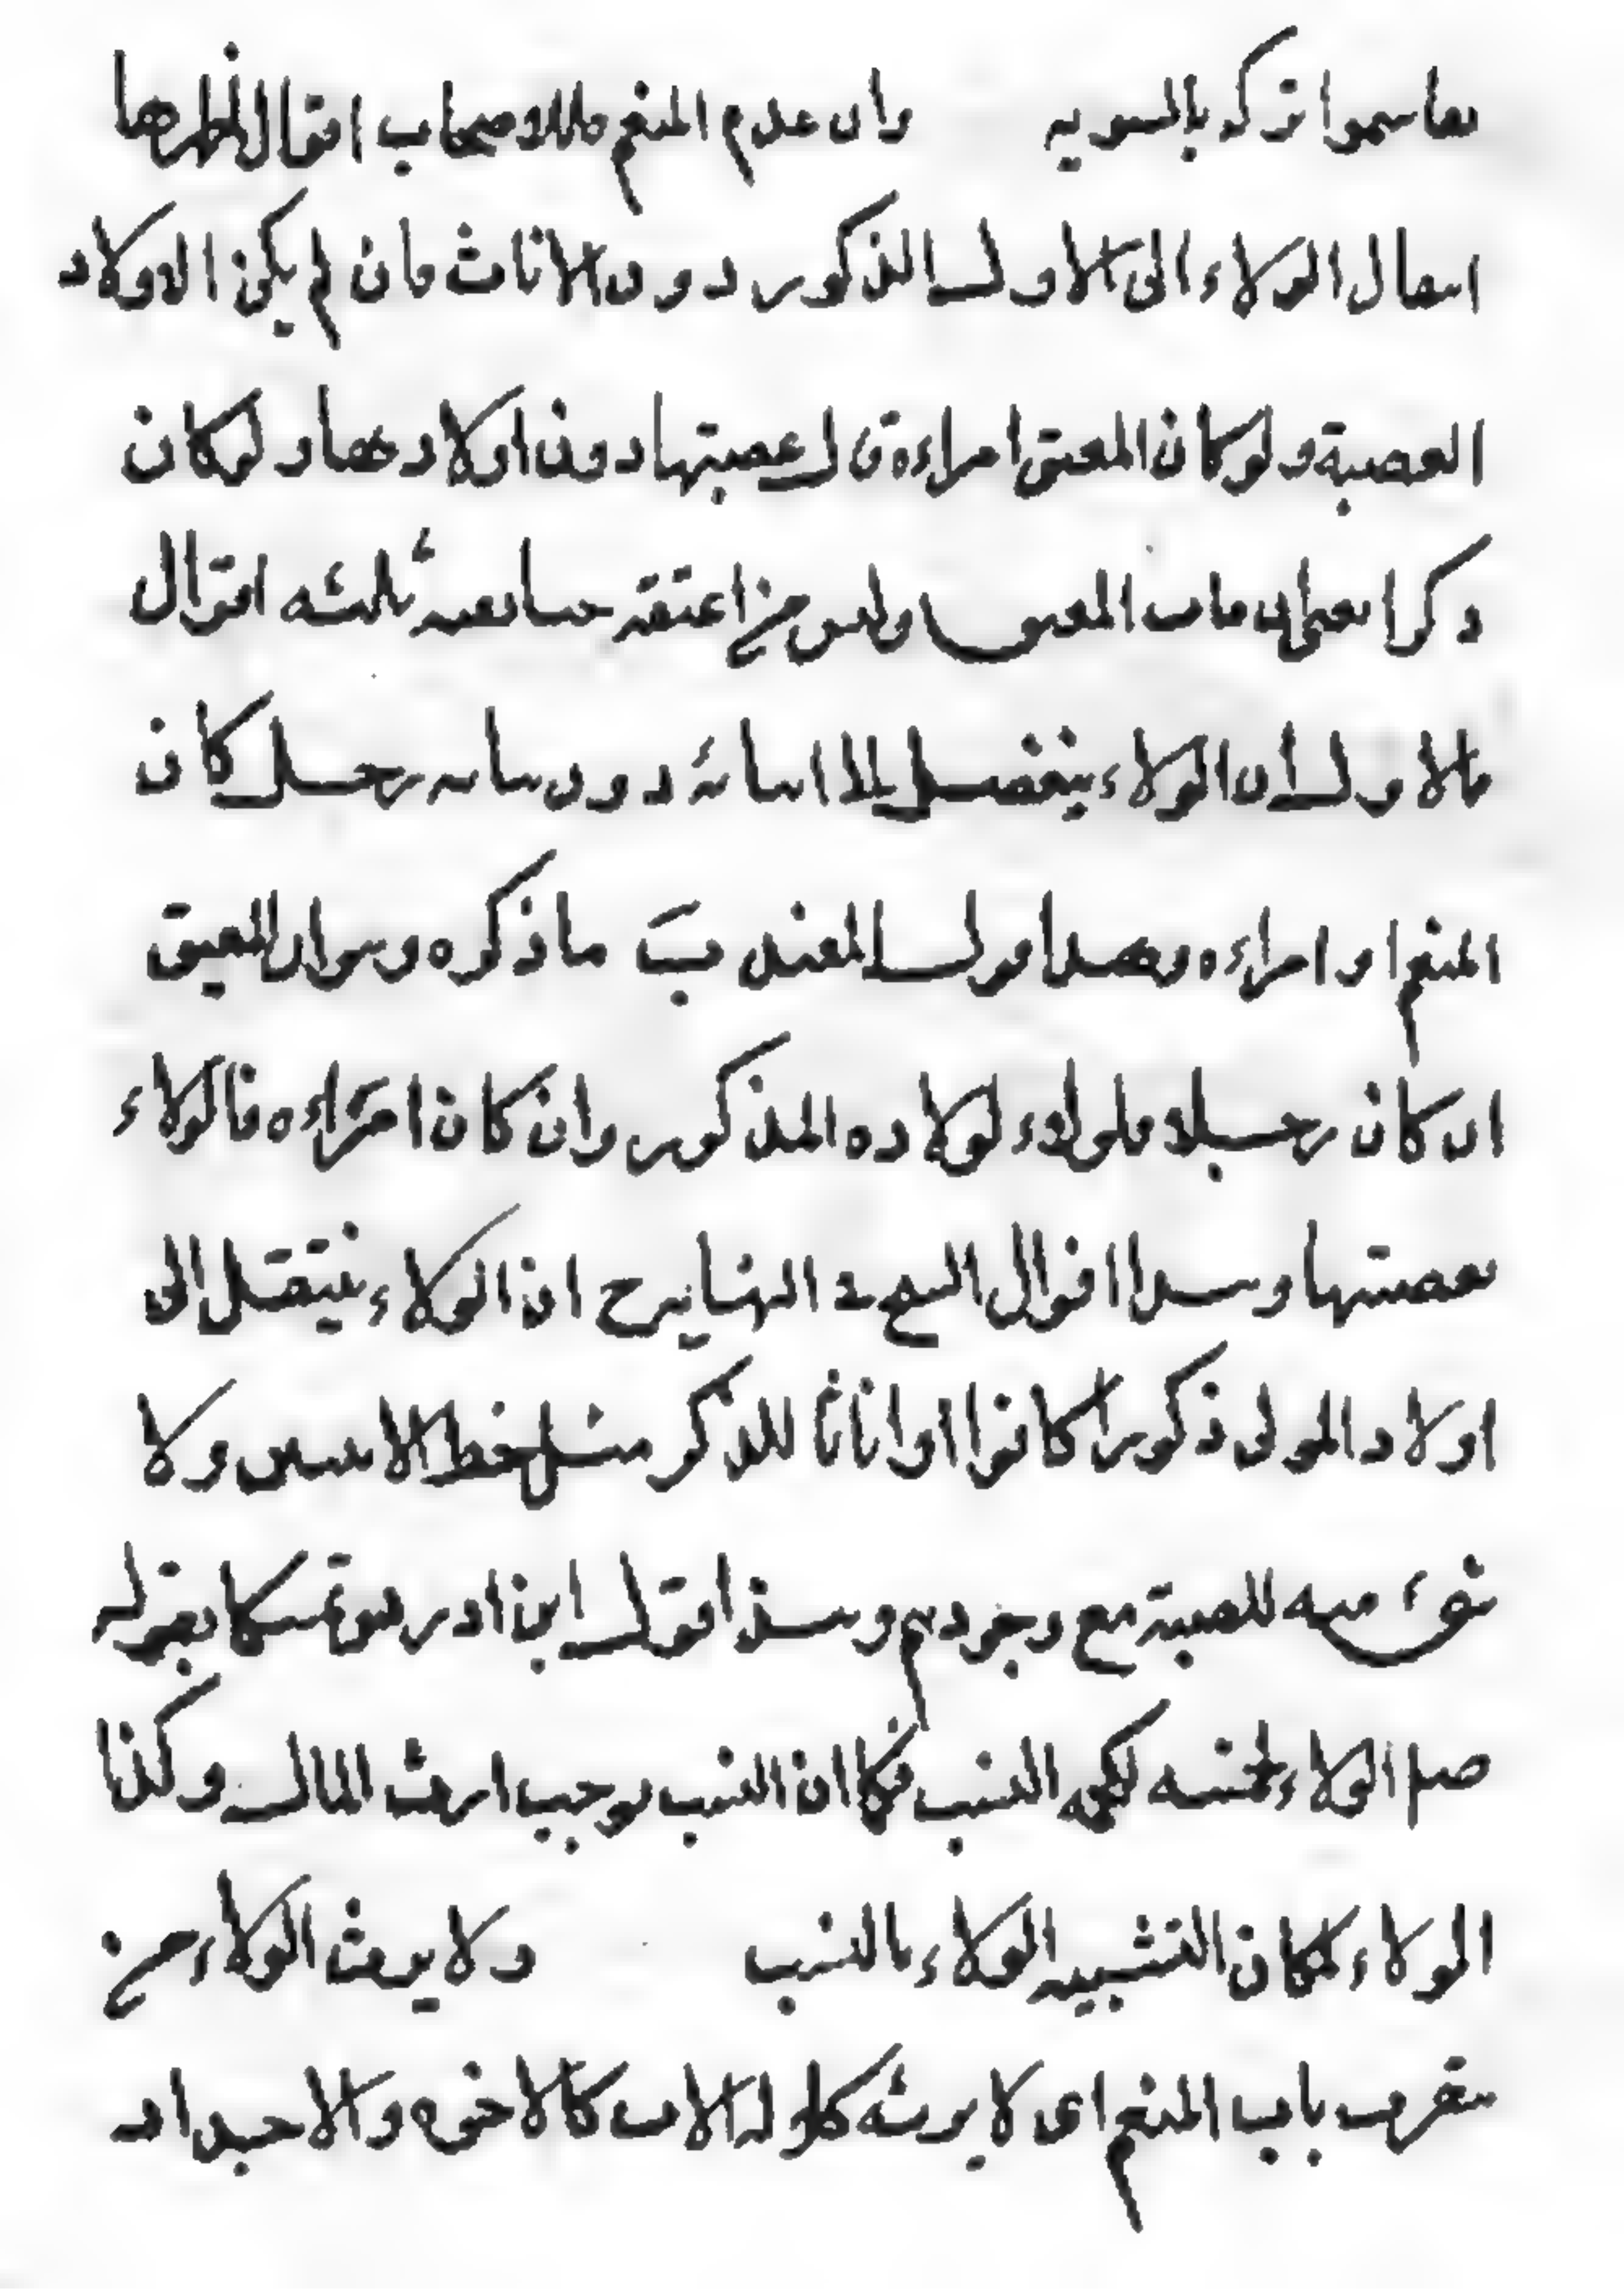 تقاسموا تركه بالسويه وان عدم المنعم فللاصحاب اقوال اظهرها
انتقال الولاء الى الاولـ الذكور دون الاناث فان لم يكن الاولاد
العصبة ولو كان المعتق امراءة لعصبتها دون اولادها ولو كان
ذكرا مات المعتق وليس من اعتقه ثلثه اقوال
فالاول ان الولاء ينفصل ابنائه دون بناته رجل كان
المنعم او امراءه وهذا قول المفيد ب ما ذكره وهو ان المعتق
ان كان رجلا فلولاء لاولاده المذكور وان كان امراءه فالولاء
لعصبتها وهذا اقوال الشيخ في النهاية ح ان الولاء ينتقل الى
اولاد المولى ذكورا كانوا او اناثا للذكر مثل حظ الانثيين ولا
شئ منه للعصبة مع وجودهم وهذا قول ابن ادريس تمسكا بقوله
صلم الولاء لحمته كلحمه النسب فكما ان النسب يوجب ارث المال وكذا
الولاء لمكان التشبيه الولاء بالنسب ولا يرث الولاء من
يتقرب باب المنعم اى لا يرثه كلوله الاب كالاخوه والاجداد